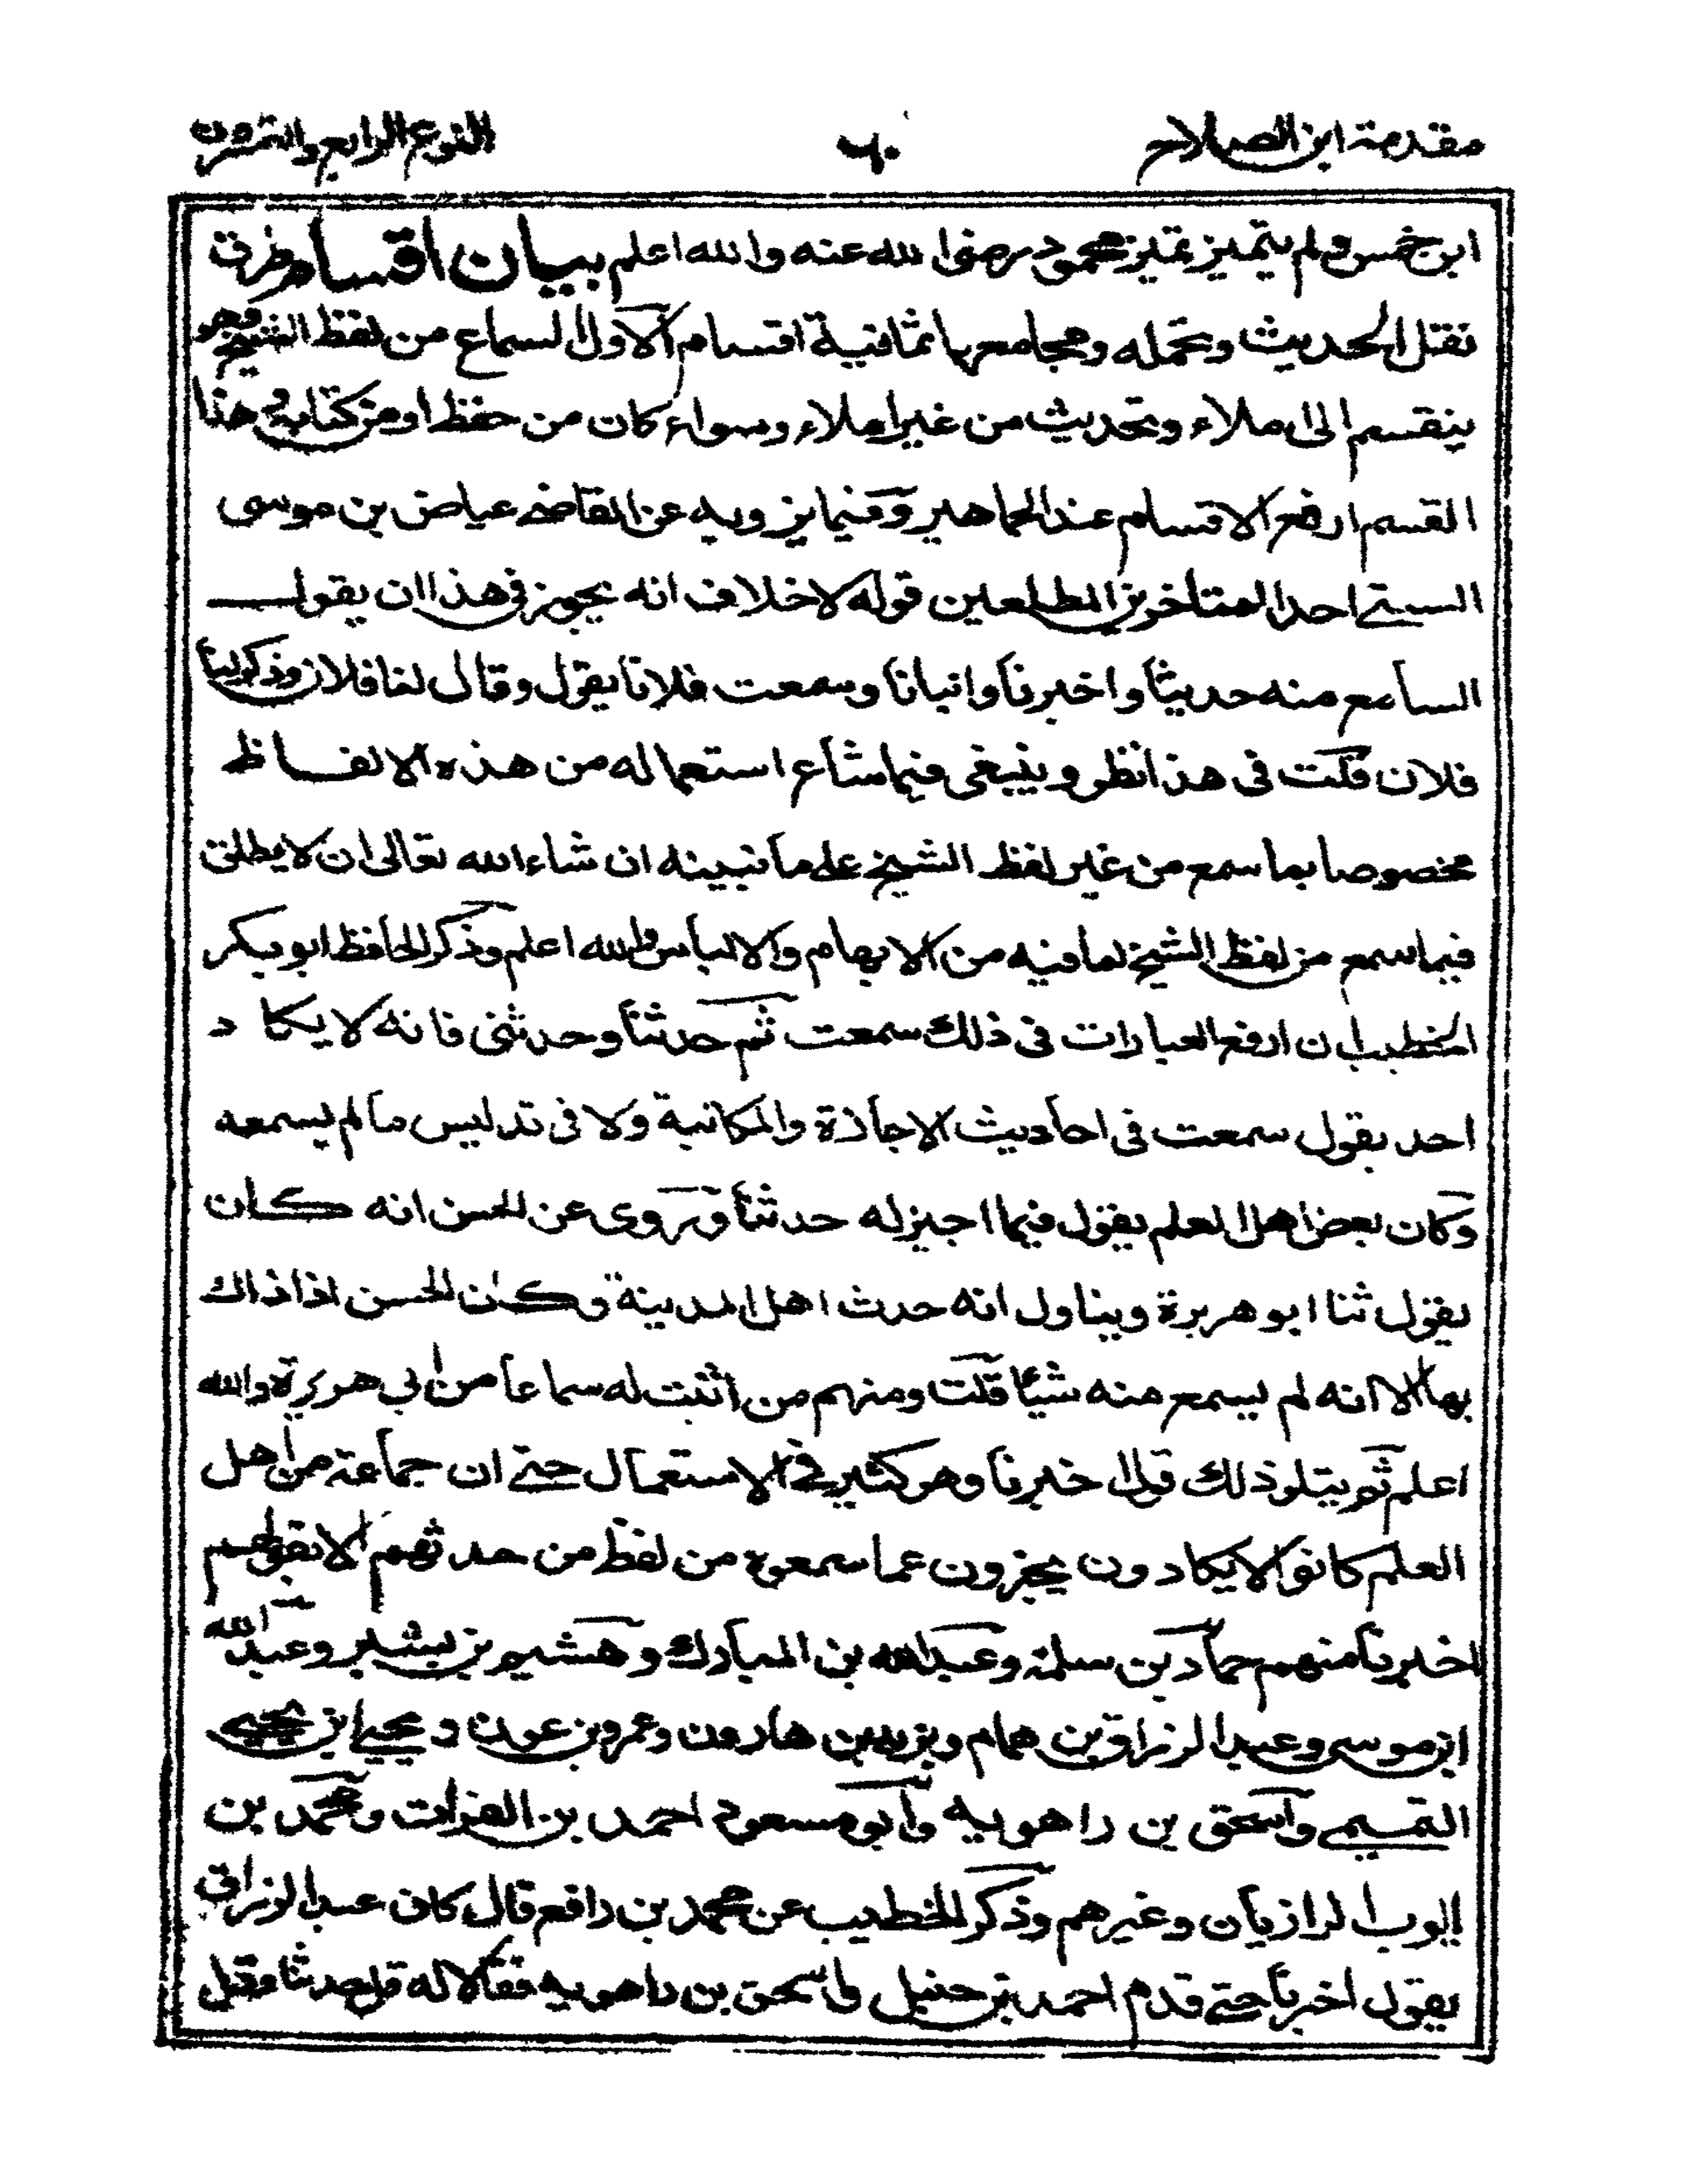 مقدمة ابن الصلاح ٦٠ النوع الرابع والعشرون
ابن خمس ولم يتميز تميز محمود رضي الله عنه والله اعلم بيان اقسام طرق
نقل الحديث وتحمله ومجامعها ثمانية اقسام الاول السماع من لفظ الشيخ وهو
ينقسم الى املاء وتحديث من غير املاء وسواء كان من حفظه او من كتابه وهذا
القسم ارفع الاقسام عند الجماهير وفيما نرويه عن القاضي عياض بن موسى
السبتي احد المتأخرين المطلعين قوله لا خلاف انه يجوز في هذا ان يقول
السامع منه حدثنا واخبرنا وانبانا وسمعت فلانا يقول وقال لنا فلان وذكر لنا
فلان قلت في هذا نظر وينبغي فيما شاع استعماله من هذه الالفاظ
مخصوصا بما سمع من غير لفظ الشيخ على ما نبينه ان شاء الله تعالى ان لا يطلق
فيما سمع من لفظ الشيخ لما فيه من الايهام والالباس والله اعلم وذكر الحافظ ابو بكر
الخطيب ان ارفع العبارات في ذلك سمعت ثم حدثنا وحدثني فانه لا يكاد
احد يقول سمعت في احاديث الاجازة والمكاتبة ولا في تدليس ما لم يسمعه
وكان بعض اهل العلم يقول فيما اجيز له حدثنا وروى عن الحسن انه كان
يقول ثنا ابو هريرة ويتاول انه حدث اهل المدينة وكان الحسن اذ اذاك
بها الا انه لم يسمع منه شيئا قلت ومنهم من اثبت له سماعا من ابي هريرة والله
اعلم ثم يتلو ذلك قول اخبرنا وهو كثير في الاستعمال حتى ان جماعة من اهل
العلم كانوا لا يكادون يخبرون عما سمعوه من لفظ من حدثهم الا بقولهم
اخبرنا منهم حماد بن سلمة وعبد الله بن المبارك وهشيم بن بشير وعبيد الله
ابن موسى وعبد الرزاق بن همام ويزيد بن هارون وعمرو بن عون ويحيى ابن يحيى
التميمي واسحق بن راهويه وابو مسعود احمد بن الفرات ومحمد بن
ايوب الرازيان وغيرهم وذكر الخطيب عن محمد بن رافع قال كان عبد الرزاق
يقول اخبرنا حتى قدم احمد بن حنبل واسحق بن راهويه فقالا له قل حدثنا فقيل